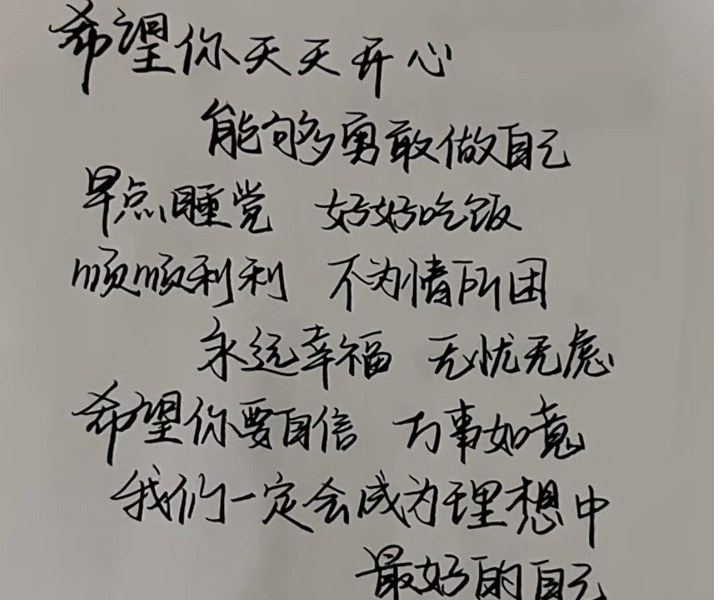 希望你天天开心
能够勇敢做自己
早点睡觉 好好吃饭
顺顺利利 不为情所困
永远幸福 无忧无虑
希望你要自信 万事如意
我们一定会成为理想中
最好的自己